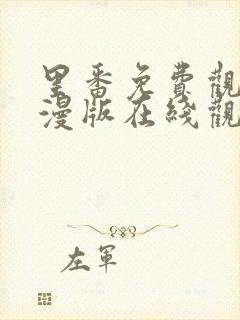 里番免費觀
漫版在綫觀
左軍